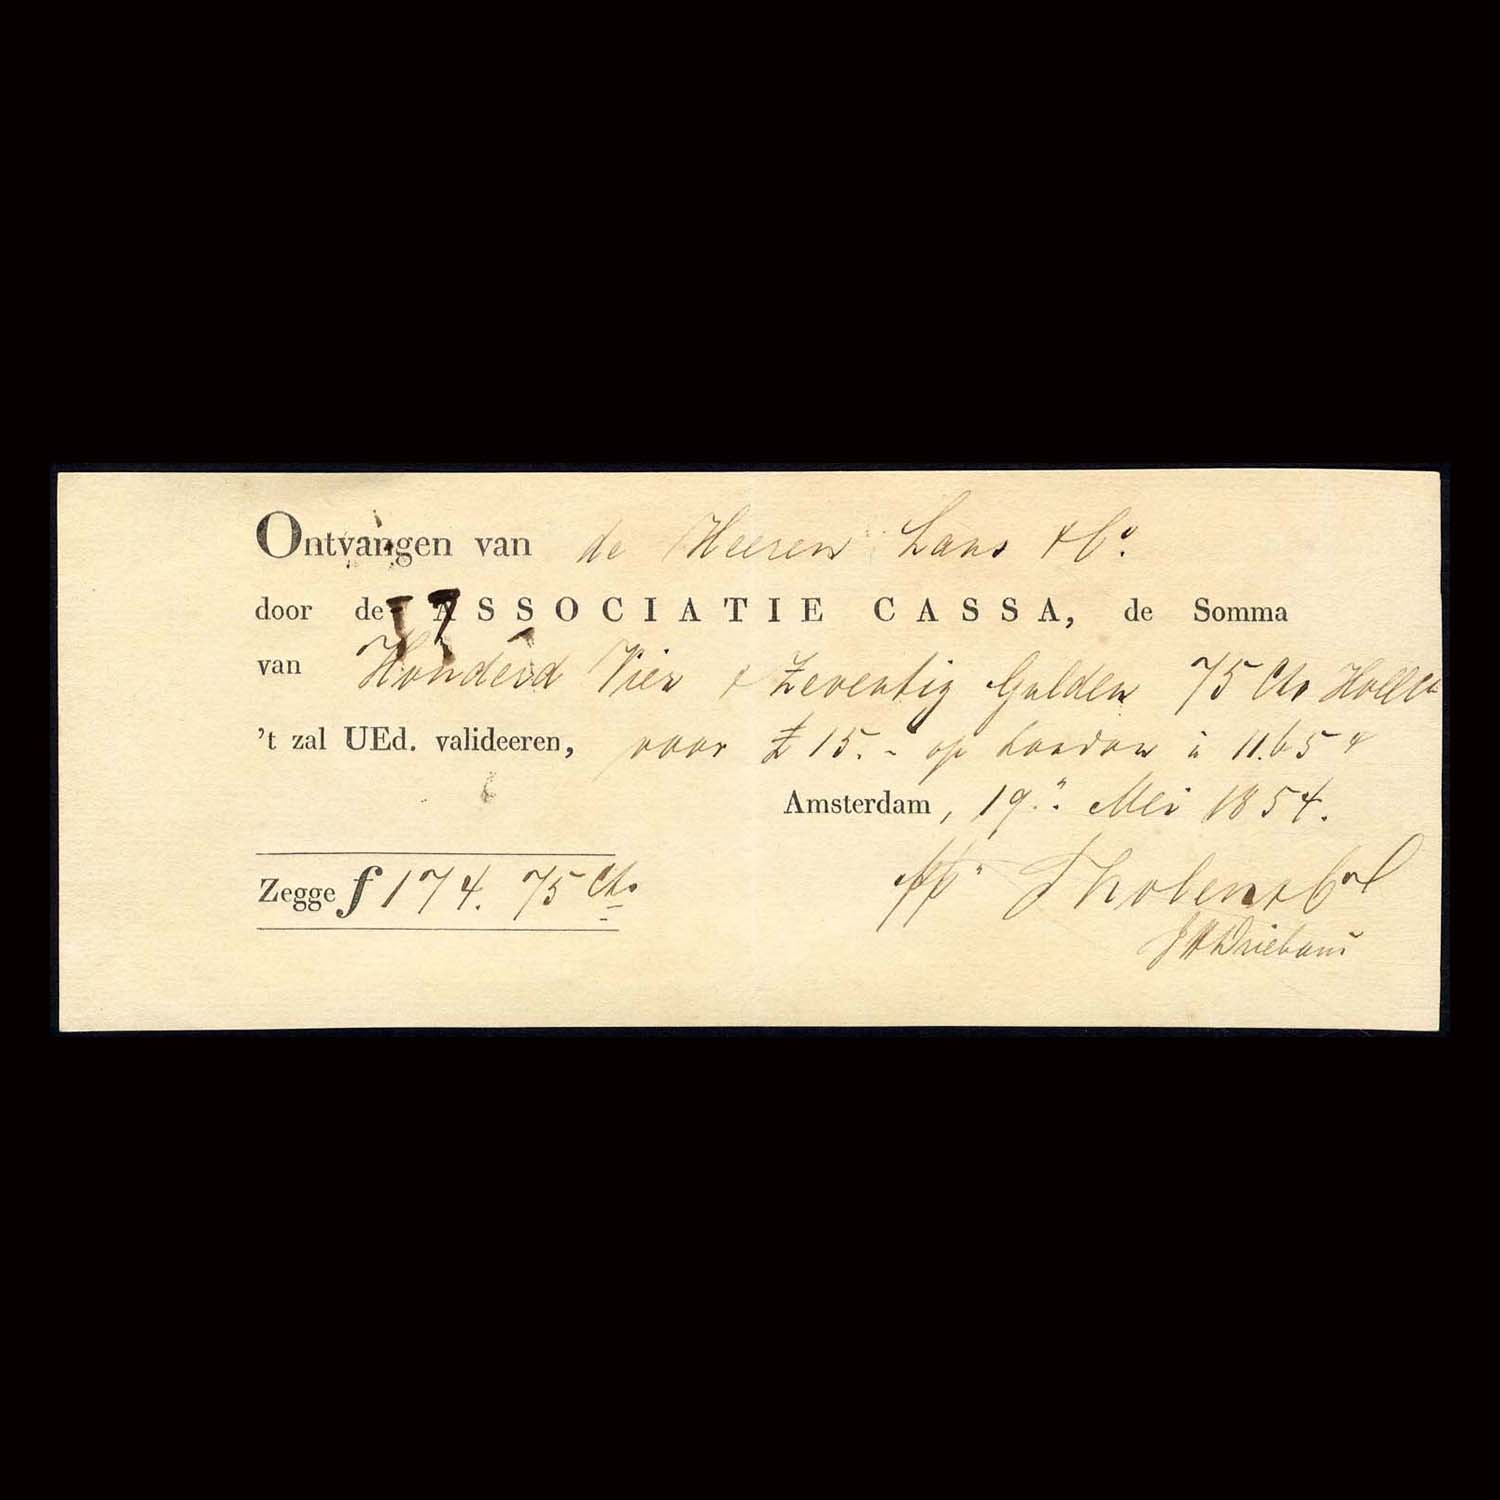 Ontvangen van de Heeren Laus & Co.
door de ASSOCIATIE CASSA, de Somma
van Honderd Vier & Zeventig Gulden 75 Cts Holl Ct
't zal UEd. valideeren, voor £ 15.- op London à 11.65
Amsterdam, 19.” Mei 1854.
Zegge ƒ 174. 75 Cts
pp Tholen &